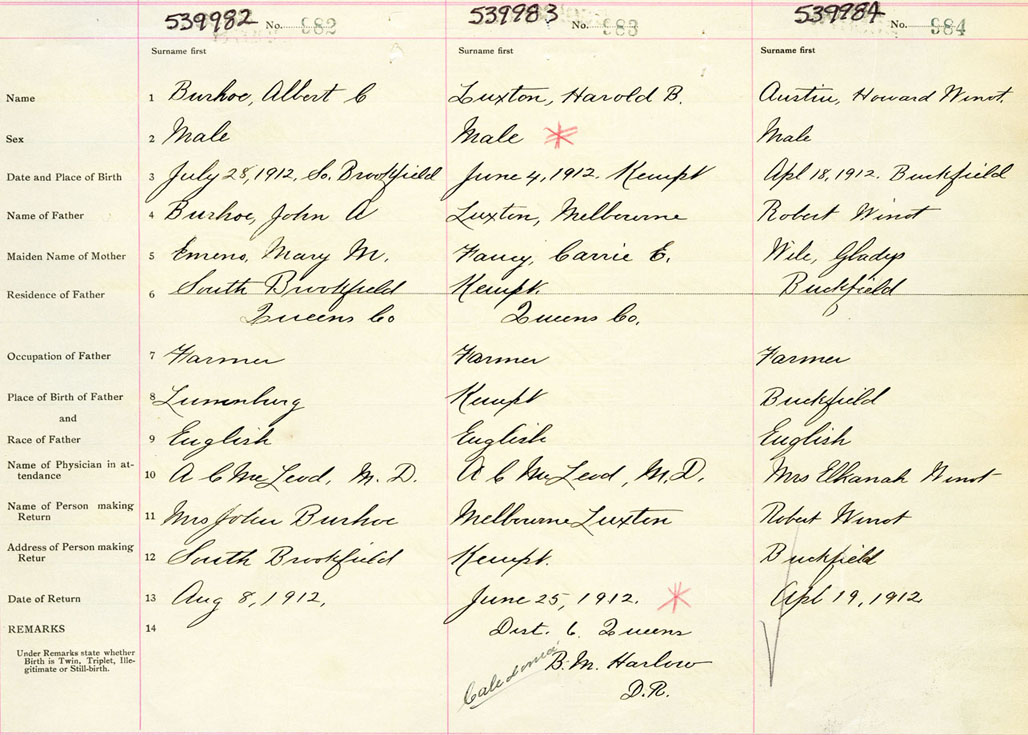 539982 No. 982 539983 No. 983 539984 No. 984
Surname first Surname first Surname first
Name 1 Burhoe, Albert C Luxton, Harold B. Austin, Howard Winot.
Sex 2 Male Male Male
Date and Place of Birth 3 July 28, 1912, So. Brookfield June 4, 1912. Kempt Apl 18, 1912. Buckfield
Name of Father 4 Burhoe, John A Luxton, Melbourne Robert Winot
Maiden Name of Mother 5 Emeno, Mary M. Fancy, Carrie E. Wile, Gladys
Residence of Father 6 South Brookfield Kempt. Buckfield
Queens Co Queens Co.
Occupation of Father 7 Farmer Farmer Farmer
Place of Birth of Father 8 Lunenburg Kempt Buckfield
and
Race of Father 9 English English English
Name of Physician in at-
tendance 10 A C McLeod, M. D. A C McLeod, M.D. Mrs Elkanah Winot
Name of Person making
Return 11 Mrs John Burhoe Melbourne Luxton Robert Winot
Address of Person making
Retur 12 South Brookfield Kempt. Buckfield
Date of Return 13 Aug 8, 1912, June 25, 1912. Apl 19, 1912
REMARKS 14 Dist. 6. Queens
Under Remarks state whether
Birth is Twin, Triplet, Ille-
gitimate or Still-birth.
Caledonia, B. M. Harlow
D.R.